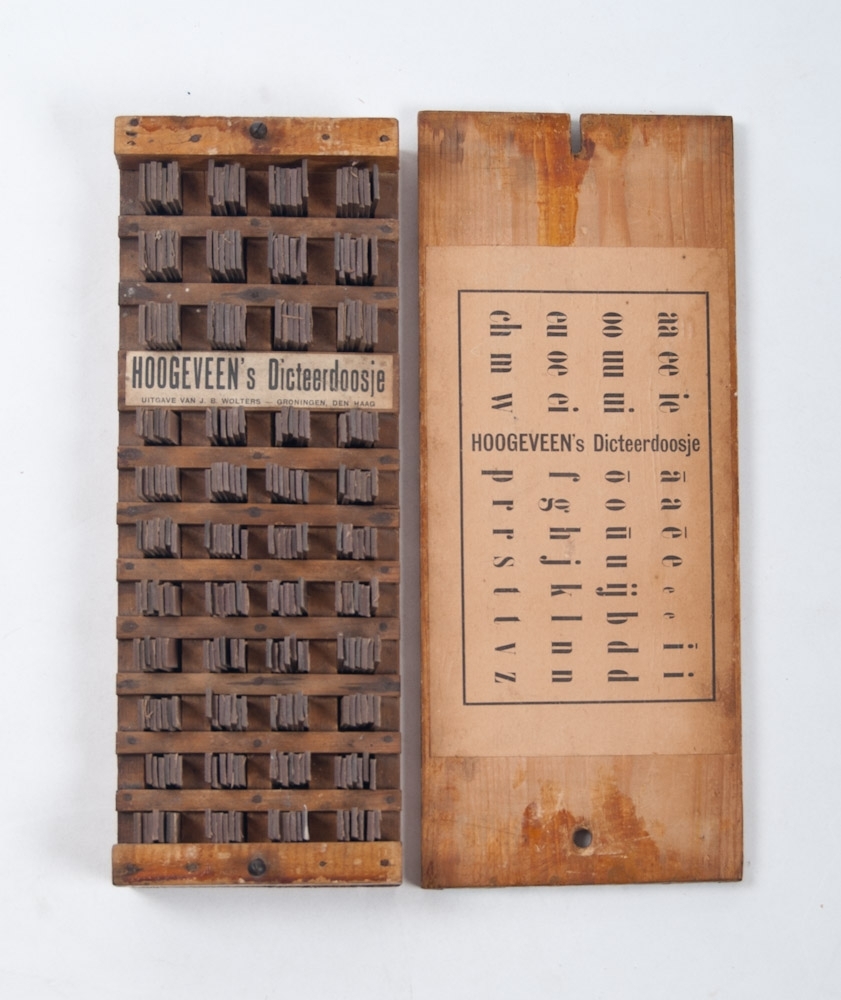 HOOGEVEEN's Dicteerdoosje
UITGAVE VAN J. B. WOLTERS — GRONINGEN, DEN HAAG
aa ee ie
oo uu ui
eu oe ei
ch m w
HOOGEVEEN's Dicteerdoosje
ā a ē e e e ī i
ō o ū u ij b d d
f g h j k l n n
p r r s t t v z